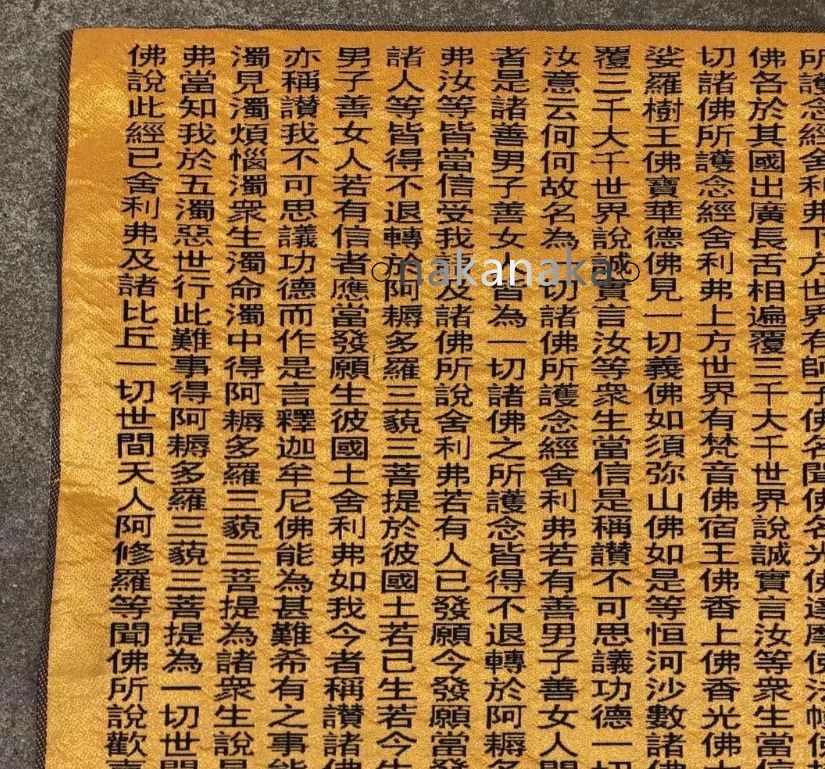 所護念經舍利弗下方世界有師子佛名聞佛名光佛達摩佛法幢佛
佛各於其國出廣長舌相遍覆三千大千世界說誠實言汝等衆生當信
切諸佛所護念經舍利弗上方世界有梵音佛宿王佛香上佛香光佛大
娑羅樹王佛寶華德佛見一切義佛如須弥山佛如是等恒河沙數諸佛
覆三千大千世界說誠實言汝等衆生當信是稱讃不可思議功德一切
汝意云何何故名為一切諸佛所護念經舍利弗若有善男子善女人聞
者是諸善男子善女人皆為一切諸佛之所護念皆得不退轉於阿耨多
弗汝等皆當信受我語及諸佛所說舍利弗若有人已發願今發願當發
諸人等皆得不退轉於阿耨多羅三藐三菩提於彼國土若已生若今生
男子善女人若有信者應當發願生彼國土舍利弗如我今者稱讃諸佛
亦稱讃我不可思議功德而作是言釋迦牟尼佛能為甚難希有之事能
濁見濁煩惱濁衆生濁命濁中得阿耨多羅三藐三菩提為諸衆生說是
弗當知我於五濁惡世行此難事得阿耨多羅三藐三菩提為一切世間
佛說此經已舍利弗及諸比丘一切世間天人阿修羅等聞佛所說歡喜
○nakanaka○